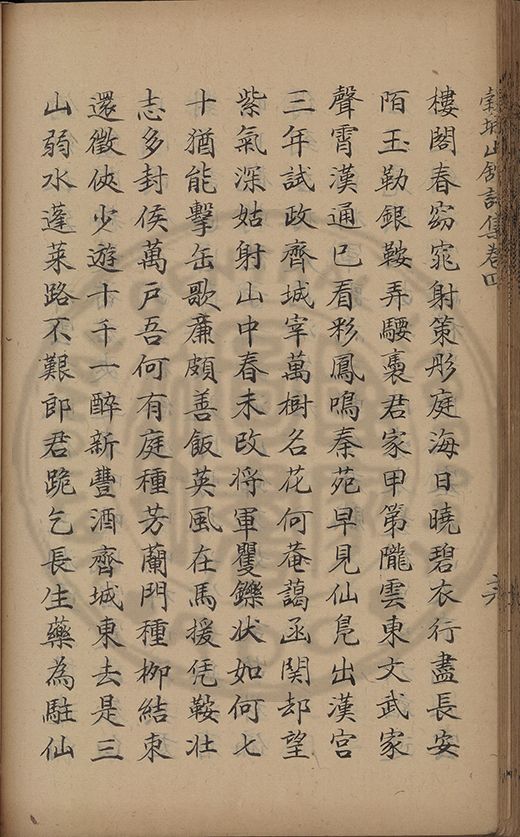 樓閣春窈窕射策彤庭海日曉碧衣行盡長安
陌玉勒銀鞍弄騕褭君家甲第隴雲東文武家
聲霄漢通已看彩鳳鳴秦苑早見仙凫出漢宮
三年試政齊城宰萬樹名花何菴藹函関却望
紫氣深姑射山中春未改将軍矍鑠状如何七
十猶能擊缶歌亷頗善飯英風在馬援凭鞍壮
志多封侯萬户吾何有庭種芳蘭門種柳結束
還徵俠少遊十千一醉新豐酒齊城東去是三
山弱水蓬萊路不艱郎君跪乞長生藥為駐仙
榖城山館詩集卷四